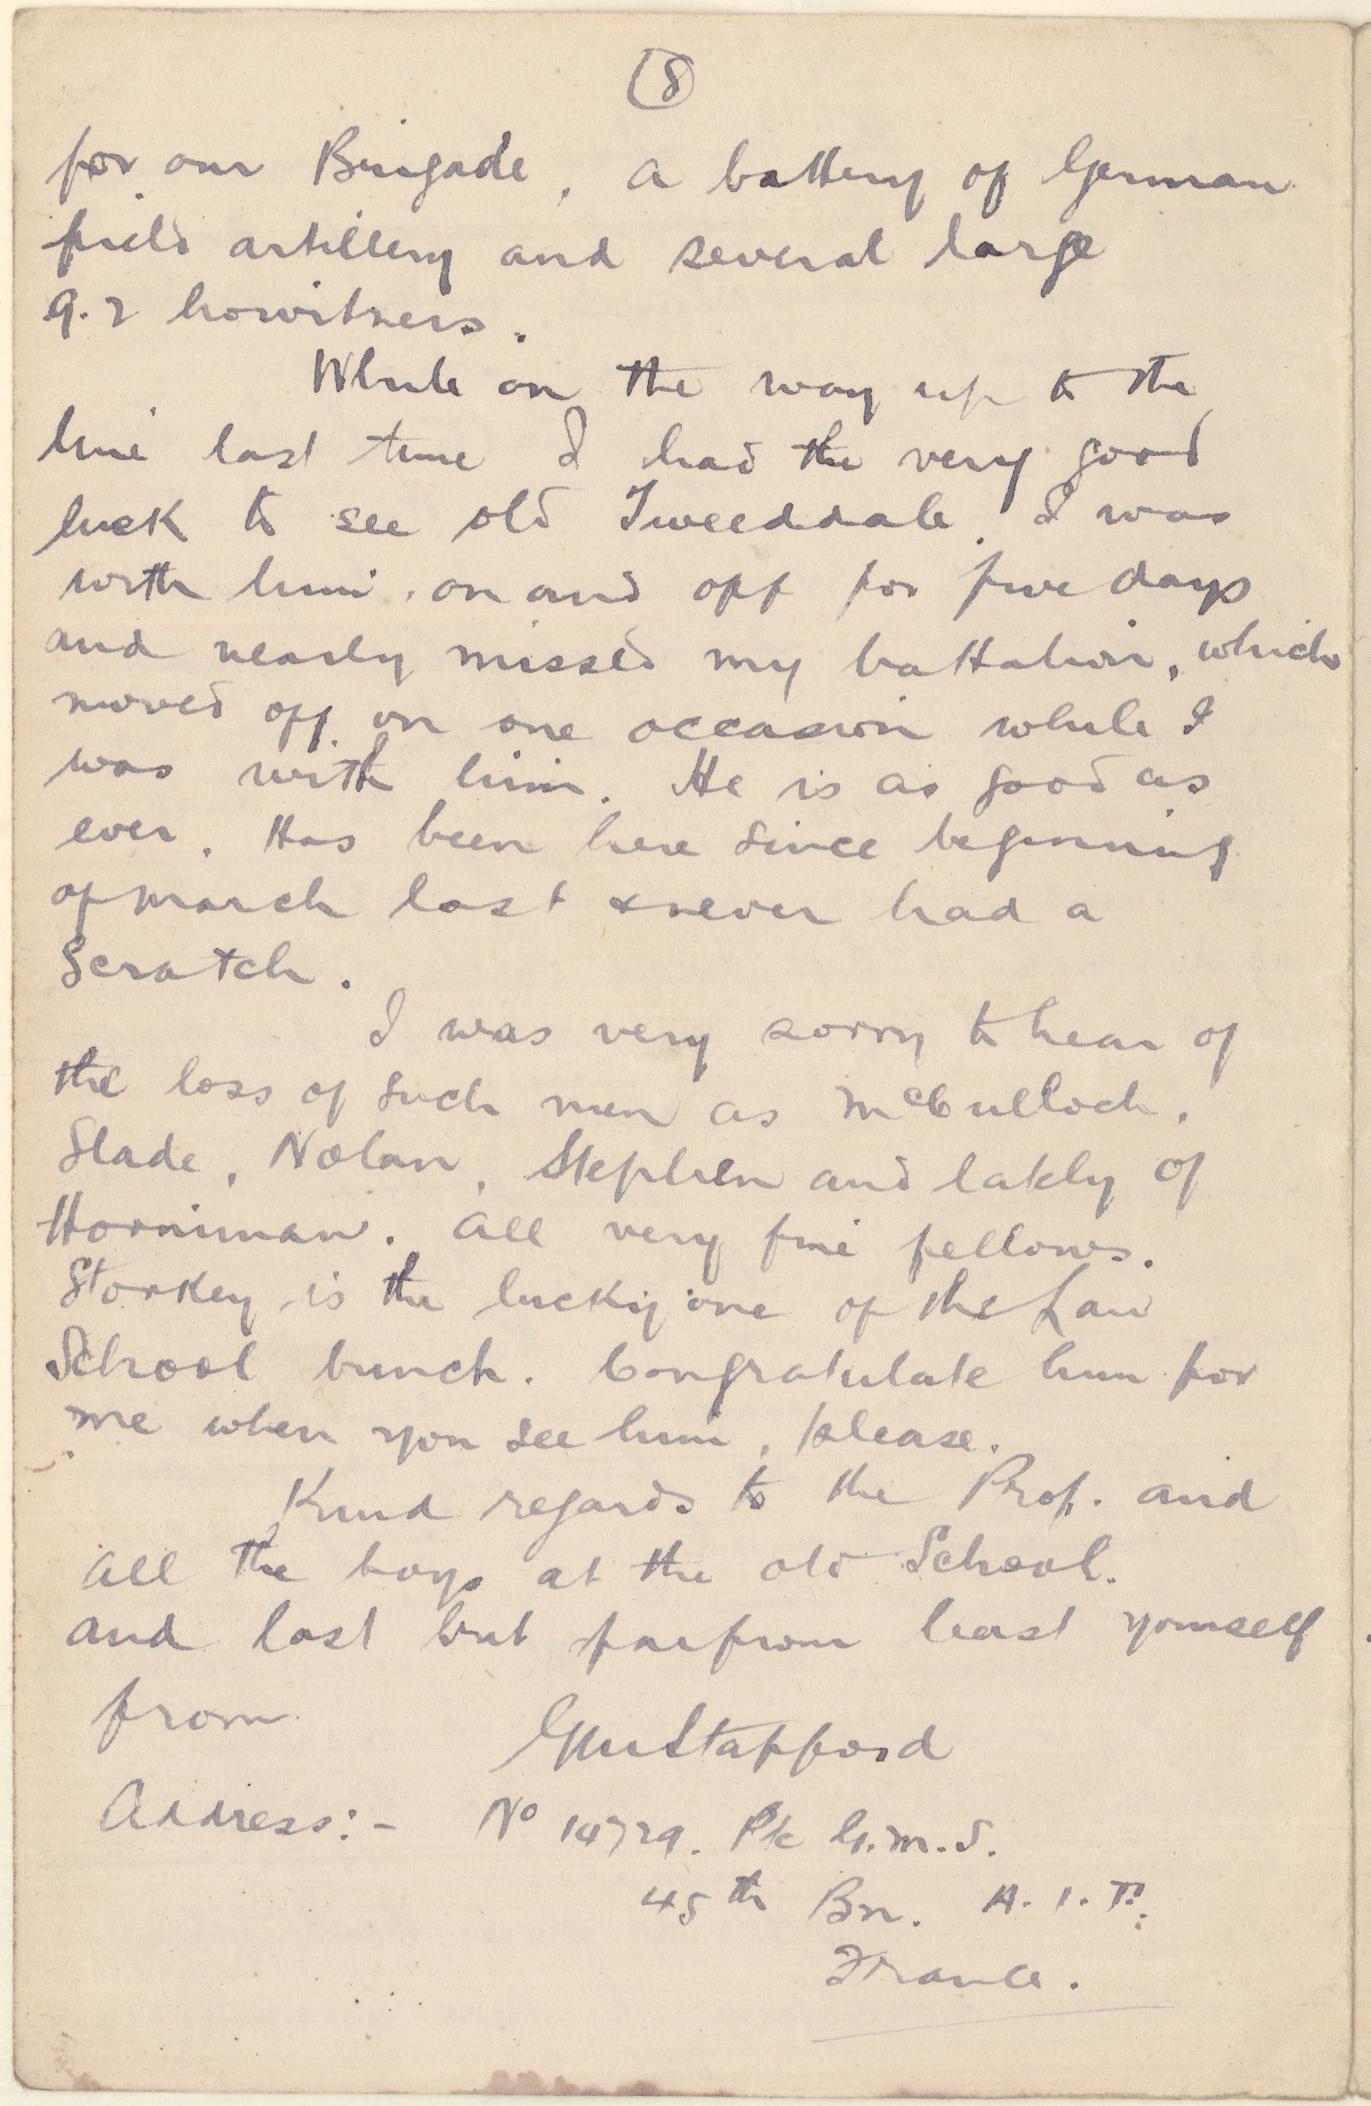 (8)
for our Brigade, a battery of German
field artillery and several large
9.2 howitzers.
While on the way up to the
line last time I had the very good
luck to see old Tweeddale. I was
with him, on and off for five days
and nearly missed my battalion, which
moved off on one occasion while I
was with him. He is as good as
ever. Has been here since beginning
of March last & never had a
Scratch.
I was very sorry to hear of
the loss of such men as McCulloch,
Slade, Nolan, Stephen and lately of
Horniman. All very fine fellows.
Storkey is the lucky one of the Law
School bunch. Congratulate him for
me when you see him, please.
Kind regards to the Prof. and
all the boys at the old School.
and last but far from least yourself.
from
Stafford
Address:- No 14729. Pte G.M.S.
45th Bn. A.I.F.
France.